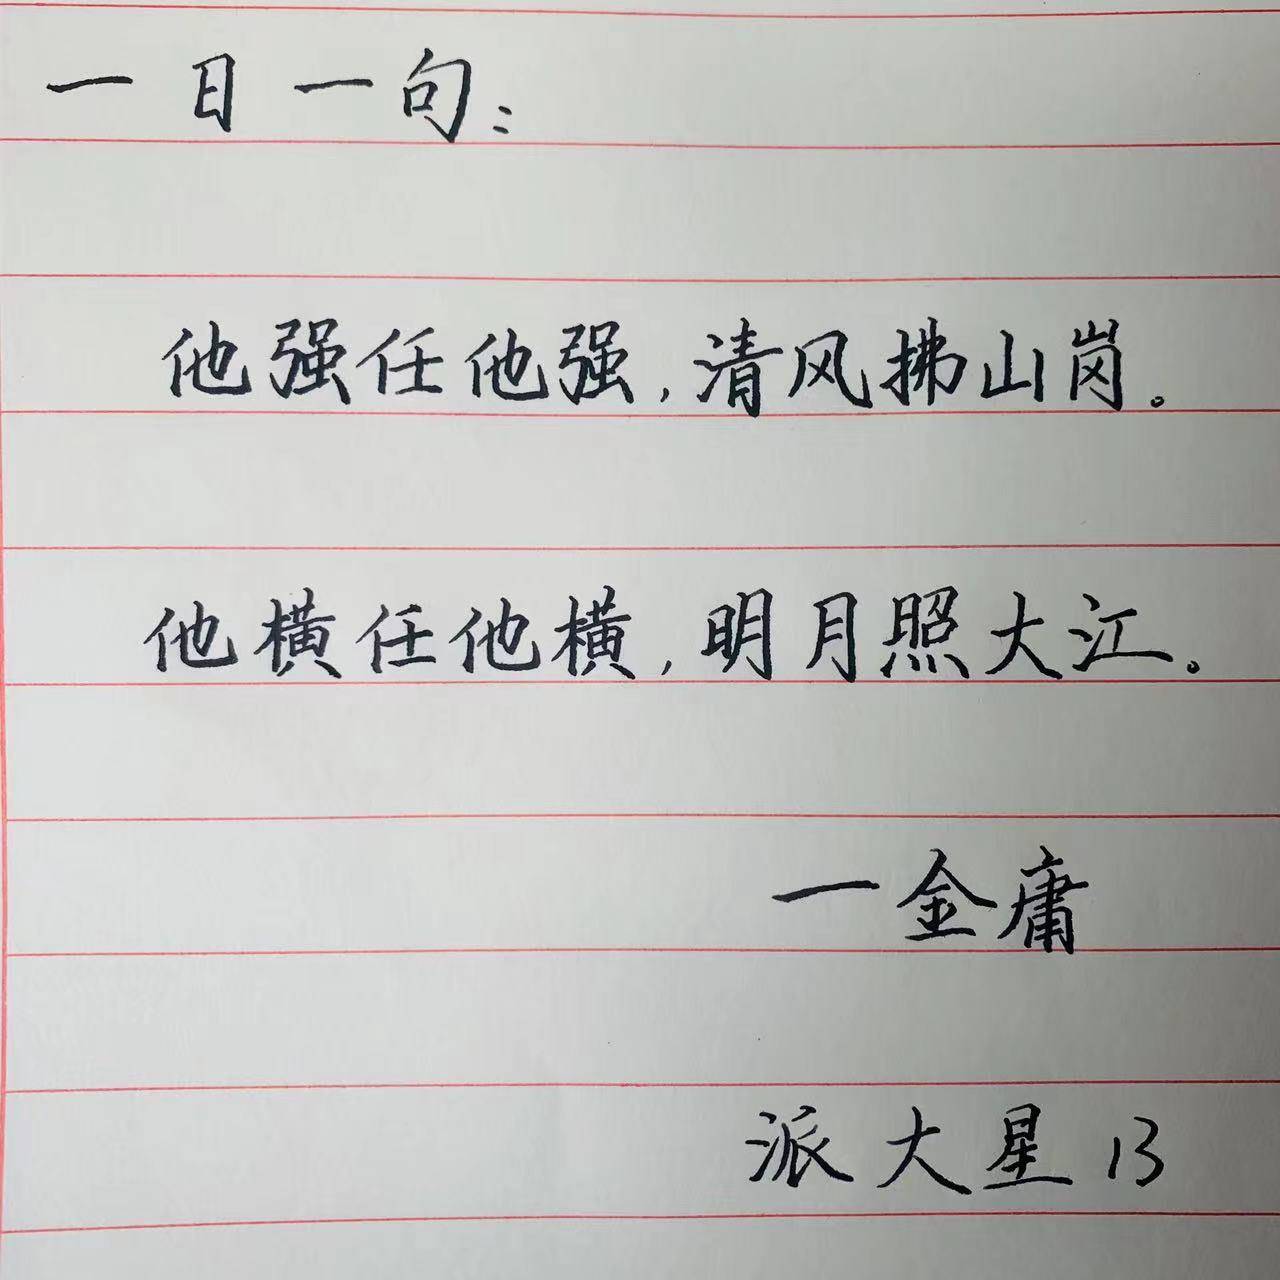 一日一句：
他强任他强，清风拂山岗。
他横任他横，明月照大江。
一金庸
派大星13